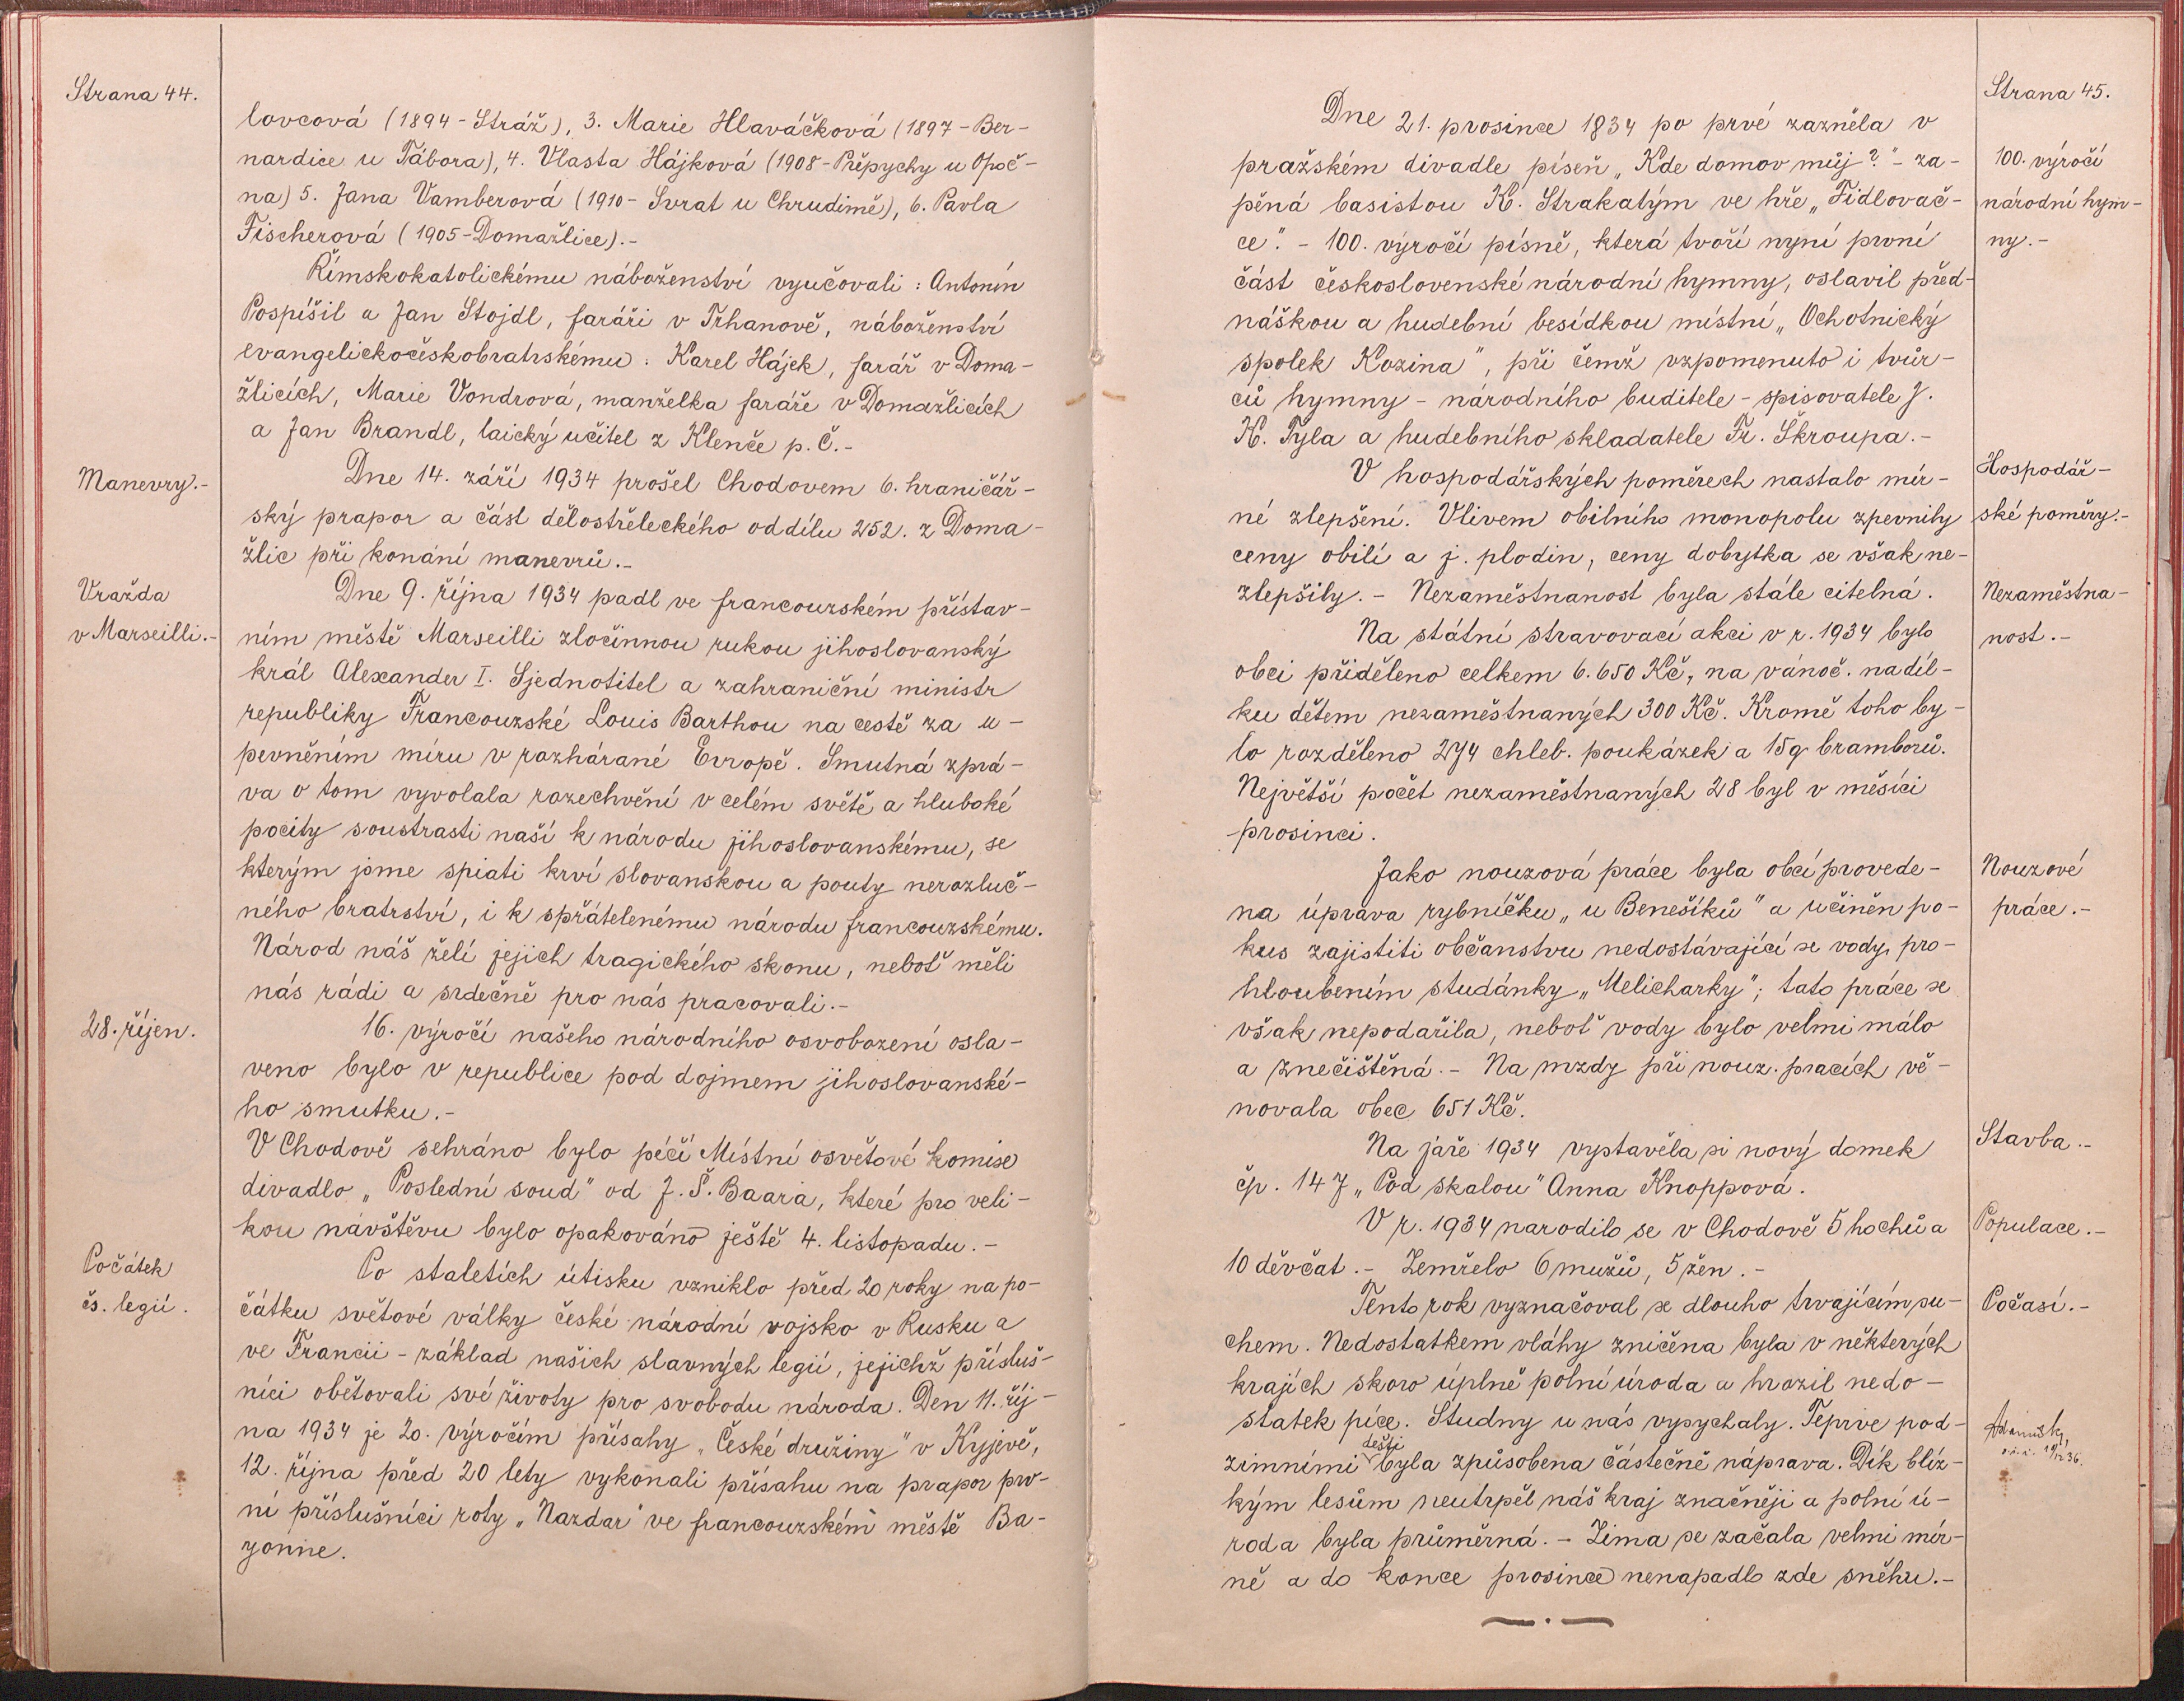 Strana 44.
lovcová (1894 - Stráž), 3. Marie Hlaváčková (1897 - Ber-
nardice u Tábora), 4. Vlasta Hájková (1908 - Přepychy u Opoč-
na) 5. Jana Vamberová (1910 - Svrat u Chrudimě), 6. Pavla
Fischerová (1905 - Domažlice).-
Římskokatolickému náboženství vyučovali: Antonín
Pospíšil a Jan Stojdl, faráři v Trhanově, náboženství
evangelickočeskobratrskému: Karel Hájek, farář v Doma-
žlicích, Marie Vondrová, manželka faráře v Domažlicích
a Jan Brandl, laický učitel z Klenče p. Č.-
Manevry.-
Dne 14. září 1934 prošel Chodovem 6. hraničář-
ský prapor a část dělostřeleckého oddílu 252. z Doma-
žlic při konání manevrů.-
Vražda
v Marseilli.-
Dne 9. října 1934 padl ve francouzském přístav-
ním městě Marseilli zločinnou rukou jihoslovanský
král Alexander I. Sjednotitel a zahraniční ministr
republiky Francouzské Louis Barthou na cestě za u-
pevněním míru v rozhárané Evropě. Smutná zprá-
va o tom vyvolala rozechvění v celém světě a hluboké
pocity soustrasti naší k národu jihoslovanskému, se
kterým jsme spiati krví slovanskou a pouty nerozluč-
ného bratrství, i k spřátelenému národu francouzskému.
Národ náš želí jejich tragického skonu, neboť měli
nás rádi a srdečně pro nás pracovali.-
28. říjen.
16. výročí našeho národního osvobození osla-
veno bylo v republice pod dojmem jihoslovanské-
ho smutku.-
V Chodově sehráno bylo péčí Místní osvětové komise
divadlo „Poslední soud" od J. Š. Baara, které pro veli-
kou návštěvu bylo opakováno ještě 4. listopadu.-
Počátek
čs. legií.
Po staletích útisku vzniklo před 20 roky na po-
čátku světové války české národní vojsko v Rusku a
ve Francii - základ našich slavných legií, jejichž přísluš-
níci obětovali své životy pro svobodu národa. Den 11. říj-
na 1934 je 20. výročím přísahy „České družiny" v Kyjevě,
12. října před 20 lety vykonali přísahu na prapor prv-
ní příslušníci roty „Nazdar" ve francouzském městě Ba-
yonne.
Strana 45.
Dne 21. prosince 1834 po prvé zazněla v
pražském divadle píseň „Kde domov můj?" - za-
pěná basistou K. Strakatým ve hře „Fidlovač-
ce". - 100. výročí písně, která tvoří nyní první
část československé národní hymny, oslavil před-
náškou a hudební besídkou místní „Ochotnický
spolek Kozina", při čemž vzpomenuto i tvůr-
ců hymny - národního buditele - spisovatele J.
K. Tyla a hudebního skladatele Fr. Škroupa.-
100. výročí
národní hym-
ny.-
V hospodářských poměrech nastalo mír-
né zlepšení. Vlivem obilního monopolu zpevnily
ceny obilí a j. plodin, ceny dobytka se však ne-
zlepšily. - Nezaměstnanost byla stále citelná.
Hospodář-
ské poměry.-
Nezaměstna-
nost.-
Na státní stravovací akci v r. 1934 bylo
obci přiděleno celkem 6.650 Kč, na vánoč. nadíl-
ku dětem nezaměstnaných 300 Kč. Kromě toho by-
lo rozděleno 274 chleb. poukázek a 15q bramborů.
Největší počet nezaměstnaných 28 byl v měsíci
prosinci.
Jako nouzová práce byla obcí provede-
na úprava rybníčku „u Benešíků" a učiněn po-
kus zajistiti občanstvu nedostávající se vody, pro-
hloubením studánky „Melicharky"; tato práce se
však nepodařila, neboť vody bylo velmi málo
a znečištěná. - Na mzdy při nouz. pracích vě-
novala obec 651 Kč.
Nouzové
práce.-
Na jaře 1934 vystavěla si nový domek
čp. 147 „Pod skalou" Anna Knoppová.
Stavba.-
V r. 1934 narodilo se v Chodově 5 hochů a
10 děvčat. - Zemřelo 6 mužů, 5 žen.-
Populace.-
Tento rok vyznačoval se dlouho trvajícím su-
chem. Nedostatkem vláhy zničena byla v některých
krajích skoro úplně polní úroda a hrozil nedo-
statek píce. Studny u nás vysychaly. Teprve pod-
zimními dešti byla způsobena částečně náprava. Dík blíz-
kým lesům neutrpěl náš kraj značněji a polní ú-
roda byla průměrná. - Zima se začala velmi mír-
ně a do konce prosince nenapadlo zde sněhu.-
Počasí.-